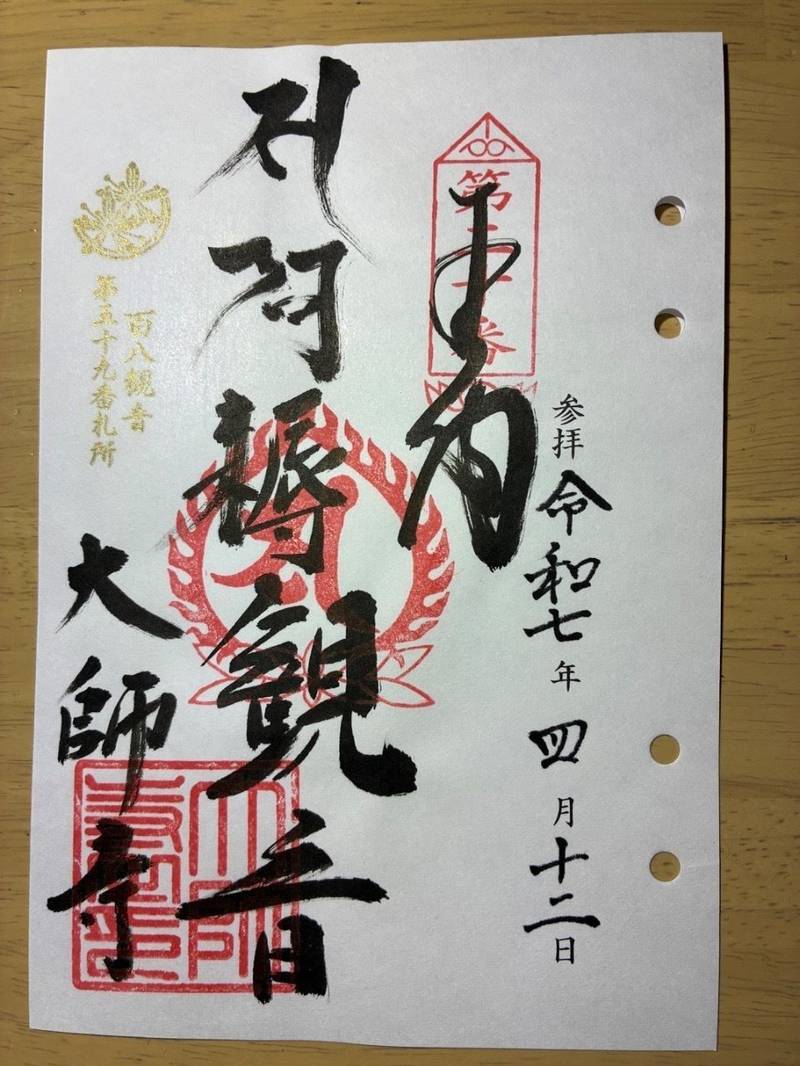 参拝 令和七年 四月十二日
第二十番
阿耨觀音
大師寺
百八観音
第五十九番札所